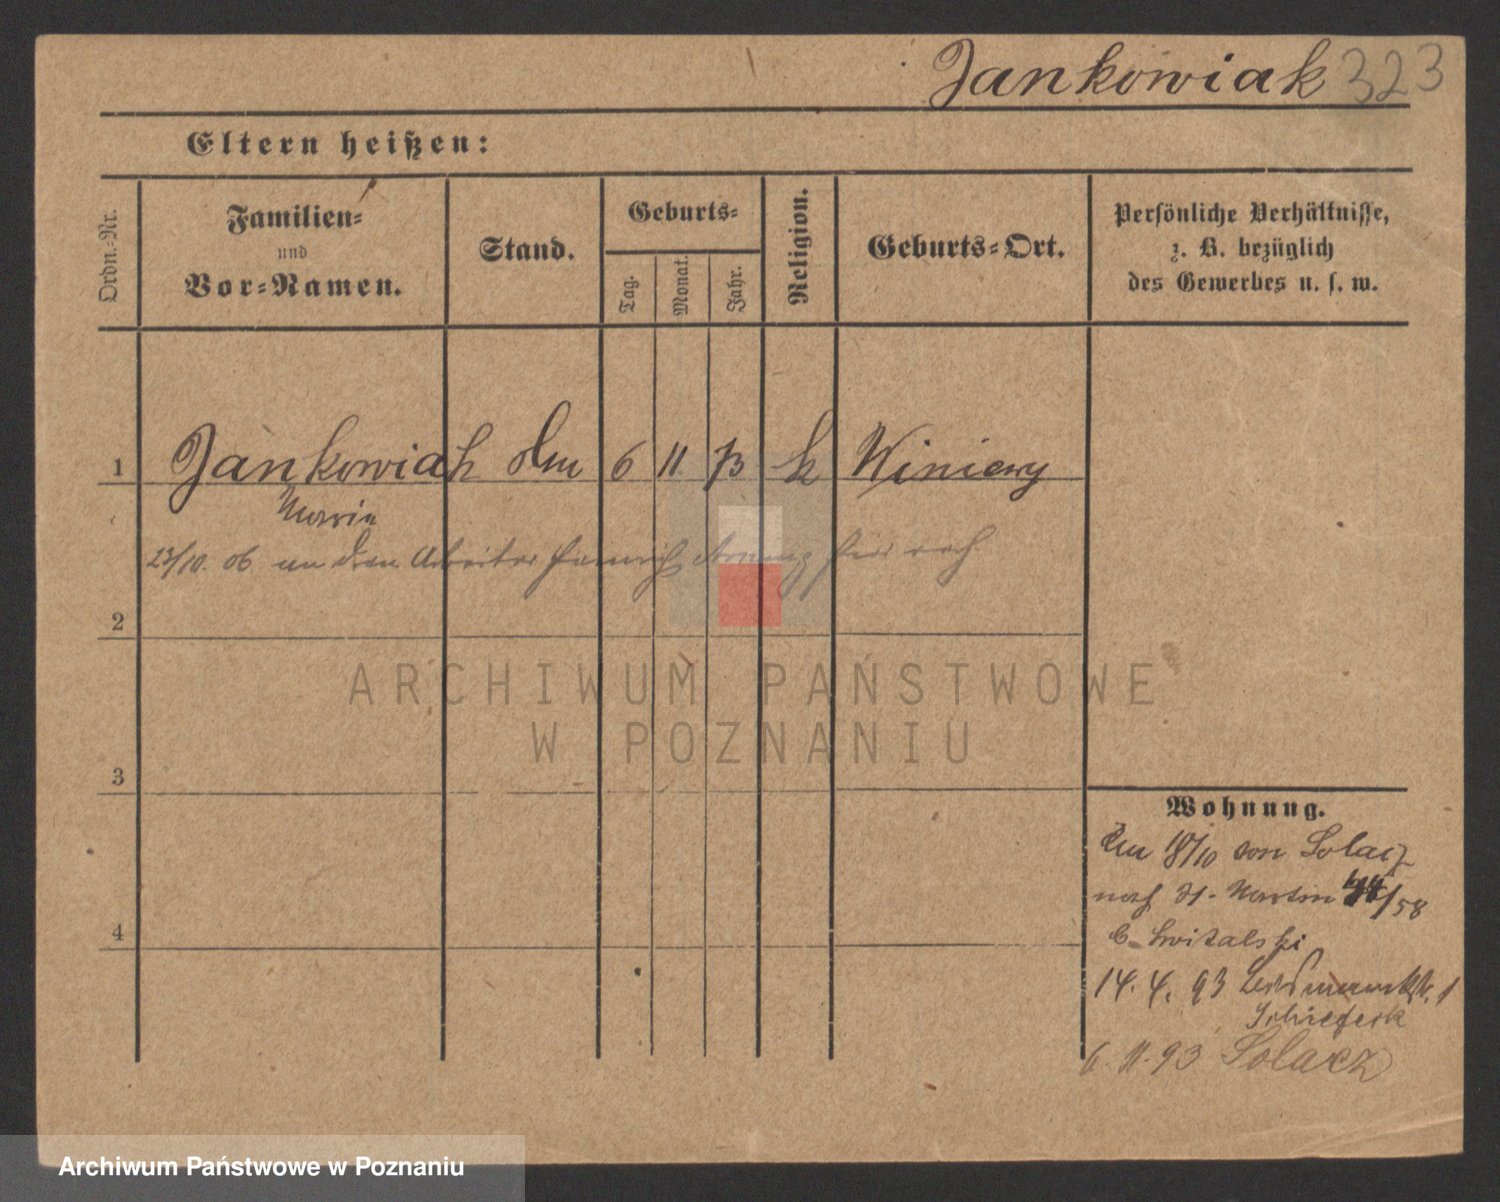 Jankowiak 323
Eltern heißen:
Ordn.-Nr.
Familien-
und
Vor-Namen.
Stand.
Geburts-
Tag.
Monat.
Jahr.
Religion.
Geburts-Ort.
Persönliche Verhältnisse,
z. B. bezüglich
des Gewerbes u. s. w.
1 Jankowiak 6 11 73 k Winiary
Marie
23/10. 06 an den Arbeiter
2
ARCHIWUM PAŃSTWOWE
W POZNANIU
3
Wohnung.
18/10 von Solacz
nach St. Martin 58
14. 4. 93 Bismarckstr. 1
4
6. 11. 93 Solacz
Archiwum Państwowe w Poznaniu